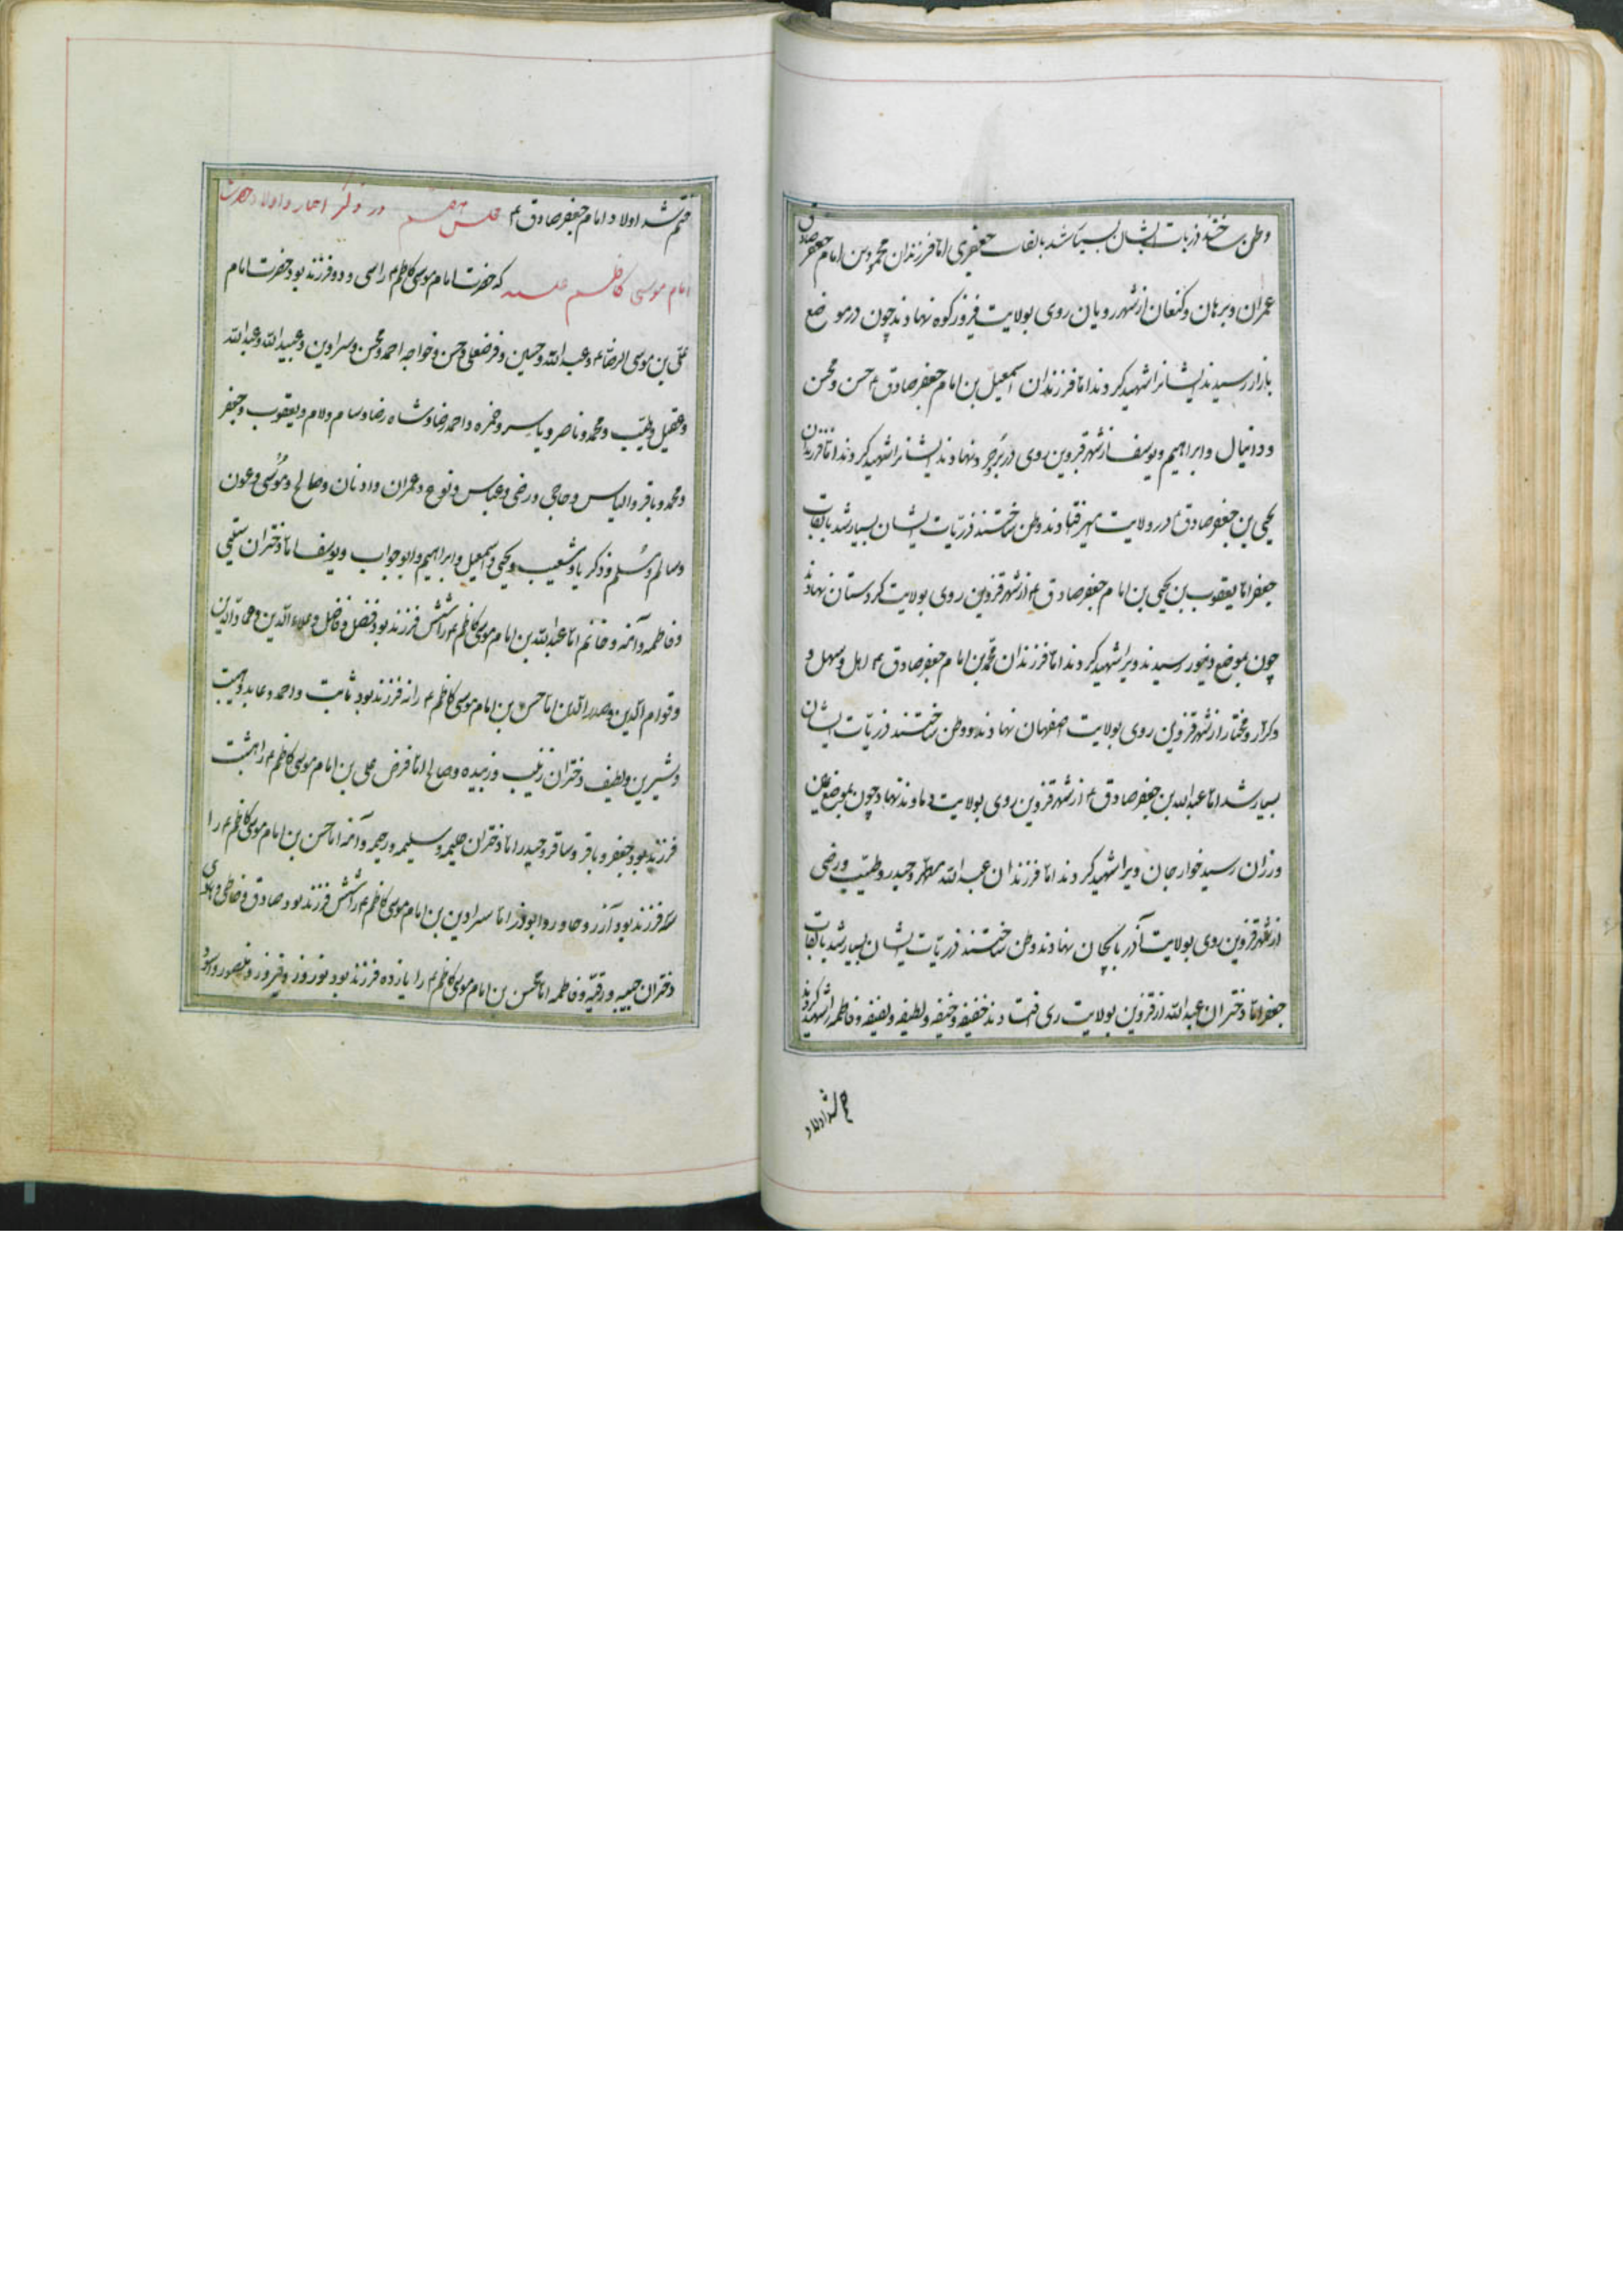 وطن ساختند ذریات ایشان بسیار شد بالقاب جعفری اما فرزندان محمود بن امام جعفر صادق
عمران و برهان و کنعان از شهر رویان روی بولایت فیروزکوه نهادند چون در موضع
بازار رسیدند ایشانرا شهید کردند اما فرزندان اسمعیل بن امام جعفر صادق ع حسن و محسن
و دانیال و ابراهیم و یوسف از شهر قزوین روی در بربرجرد نهادند ایشانرا شهید کردند اما فرزندان
یحیی بن جعفر صادق ع در ولایت افتادند وطن ساختند ذریات ایشان بسیار شد بالقاب
جعفر اما یعقوب بن یحیی بن امام جعفر صادق ع از شهر قزوین روی بولایت کردستان نهاد
چون بموضع دینور رسیدند ویرا شهید کردند اما فرزندان محمد بن امام جعفر صادق ع اهل و سهل و
کرار و مختار از شهر قزوین روی بولایت اصفهان نهادند و وطن ساختند ذریات ایشان
بسیار شد اما عبدالله بن جعفر صادق ع از شهر قزوین روی بولایت دماوند نهاد چون بموضع عین
ورزان رسید خوارجان ویرا شهید کردند اما فرزندان عبدالله مطهر و حیدر و طیب و رضی
از شهر قزوین روی بولایت آذربایجان نهادند وطن ساختند ذریات ایشان بسیار شد بالقاب
جعفر اما دختران عبدالله از قزوین بولایت ری افتادند خفیفه و حنیفه و لطیفه و نفیفه و فاطمه را شهید کردند
ختم شد اولاد
ختم شد اولاد امام جعفر صادق ع مجلس هفتم در ذکر اخبار و اولاد حضرت
امام موسی کاظم علیه که حضرت امام موسی کاظم ع را سی و دو فرزند بود حضرت امام
علی بن موسی الرضا ع و عبدالله و حسین و فرضعلی و حسن و خواجه احمد و محسن و سرادین و عبیدالله و عبدالله
و عقیل و طیب و محمد و ناصر و یاسر و حمزه و احمد رضا و شاه رضا و سام و لام و یعقوب و جعفر
و محمد و باقر و الیاس و حاجی و رضی و عباس و نوح و عمران و ادنان و صالح و موسی و عون
و سالم و مسلم و ذکریا و شعیب و یحیی و اسمعیل و ابراهیم و ابوجواب و یوسف اما دختران ستقی
و فاطمه و آمنه و خانم اما عبدالله بن امام موسی کاظم ع را شش فرزند بود فضل و فاضل و علاء الدین و عماد الدین
و قوام الدین و صدر الدین اما حسن بن امام موسی کاظم ع را نه فرزند بود ثابت و احمد و عابد و هبت
و شیرین و لطیف دختران زینب و زبیده و صالح اما فرض علی بن امام موسی کاظم ع را هشت
فرزند بود جعفر و باقر و ساقر و حیدر اما دختران حلیمه و سلیمه و رحیمه و آمنه اما حسن بن امام موسی کاظم ع را
سه فرزند بود آذر و حاور و ابوذر اما سرادین بن امام موسی کاظم ع را شش فرزند بود صادق و فاطمی و هادی
دختران حبیبه و رقیه و فاطمه اما محسن بن امام موسی کاظم ع را یازده فرزند بود نوروز و فیروز و منصور و داود